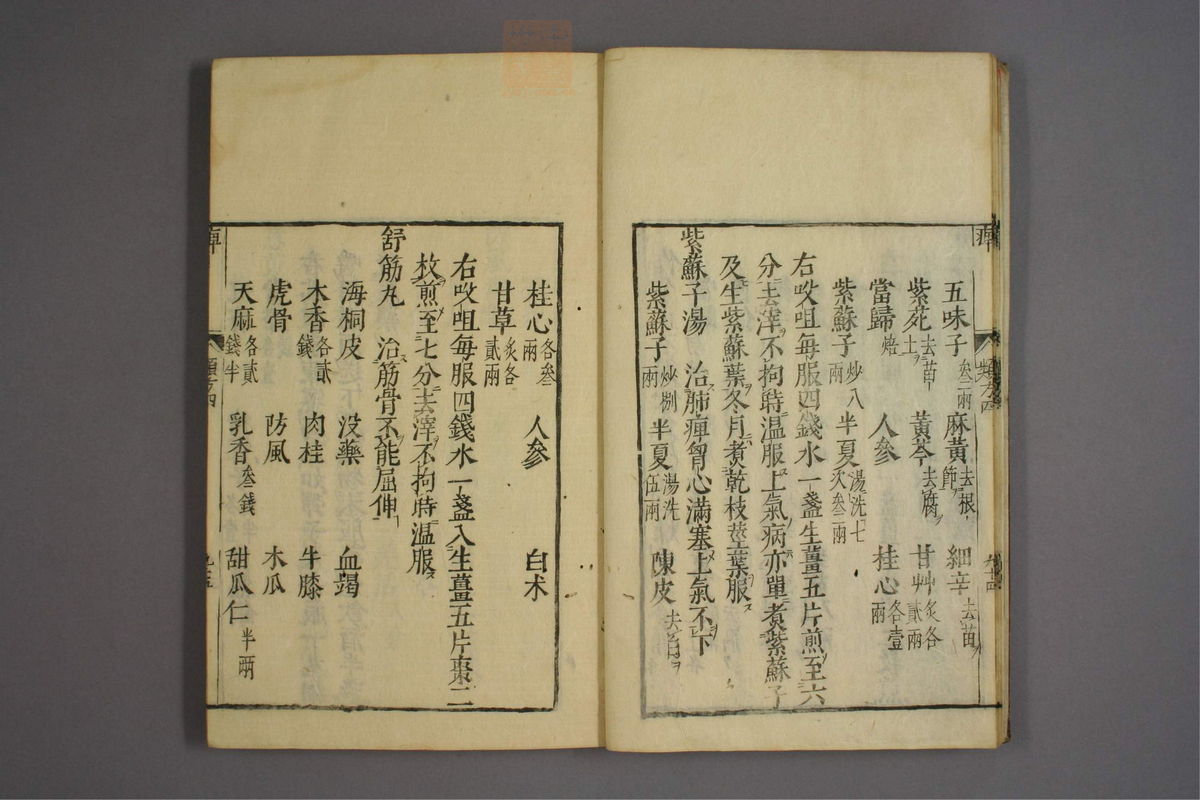 痺
類方四
九十四
五味子叁兩 麻黄去根節 細辛去苗
紫菀去苗土 黄芩去腐 甘艸炙各貳兩
當歸焙 人參 桂心各壹兩
紫蘇子炒八兩 半夏湯洗七次叁兩
右㕮咀每服四錢水一盞生薑五片煎至六
分去滓不拘時温服上氣病亦單煮紫蘇子
及生紫蘇葉冬月煮乾枝莖葉服
紫蘇子湯 治肺痺胷心滿塞上氣不下
紫蘇子炒捌兩 半夏湯洗伍兩 陳皮去白
桂心各叁兩 人參 白术
甘草炙各貳兩
右㕮咀每服四錢水一盞入生薑五片棗二
枚煎至七分去滓不拘時温服
舒筋丸 治筋骨不能屈伸
海桐皮 没藥 血竭
木香各貳錢 肉桂 牛膝
虎骨 防風 木瓜
天麻各貳錢半 乳香叁錢 甜瓜仁半兩
痺
類方四
九十五